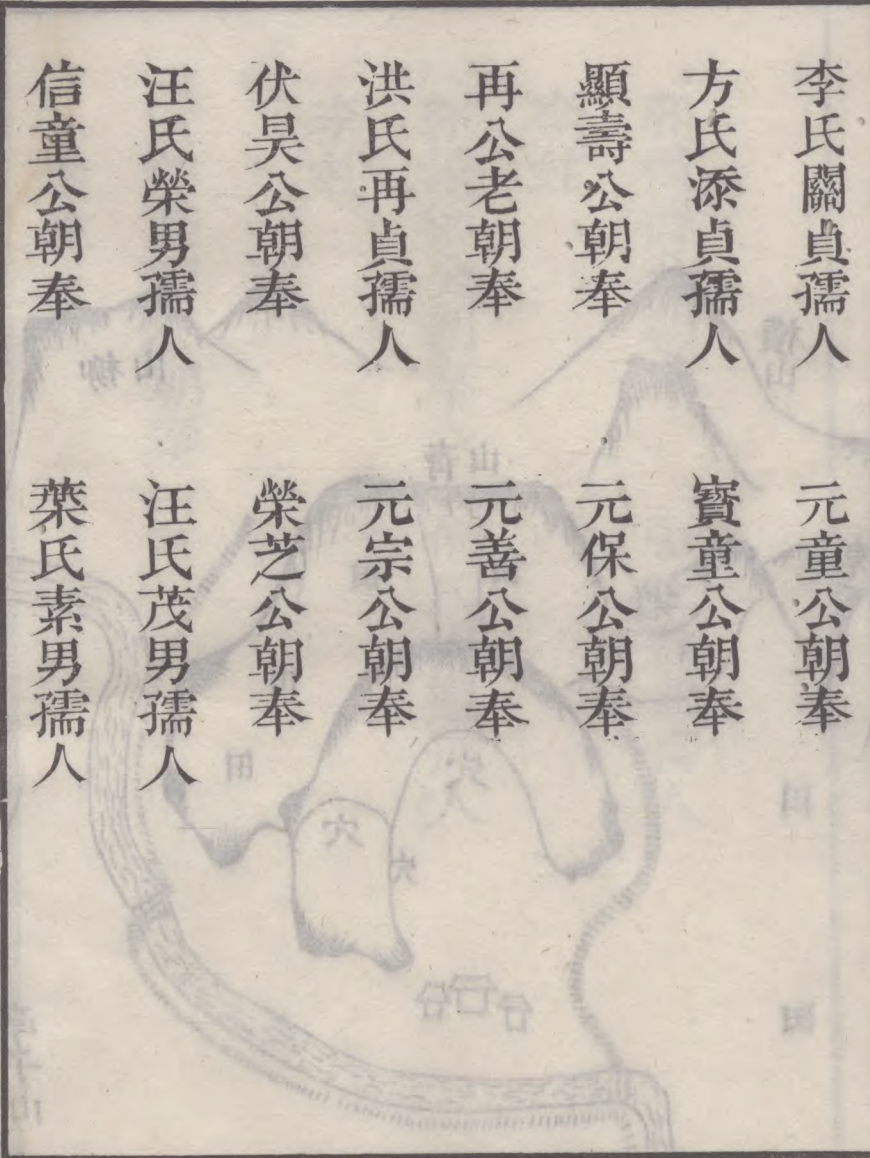 李氏關貞孺人　元童公朝奉
方氏添貞孺人　寳童公朝奉
顯壽公朝奉　元保公朝奉
再公老朝奉　元善公朝奉
洪氏再貞孺人　元宗公朝奉
伏昊公朝奉　榮芝公朝奉
汪氏榮男孺人　汪氏茂男孺人
信童公朝奉　葉氏素男孺人